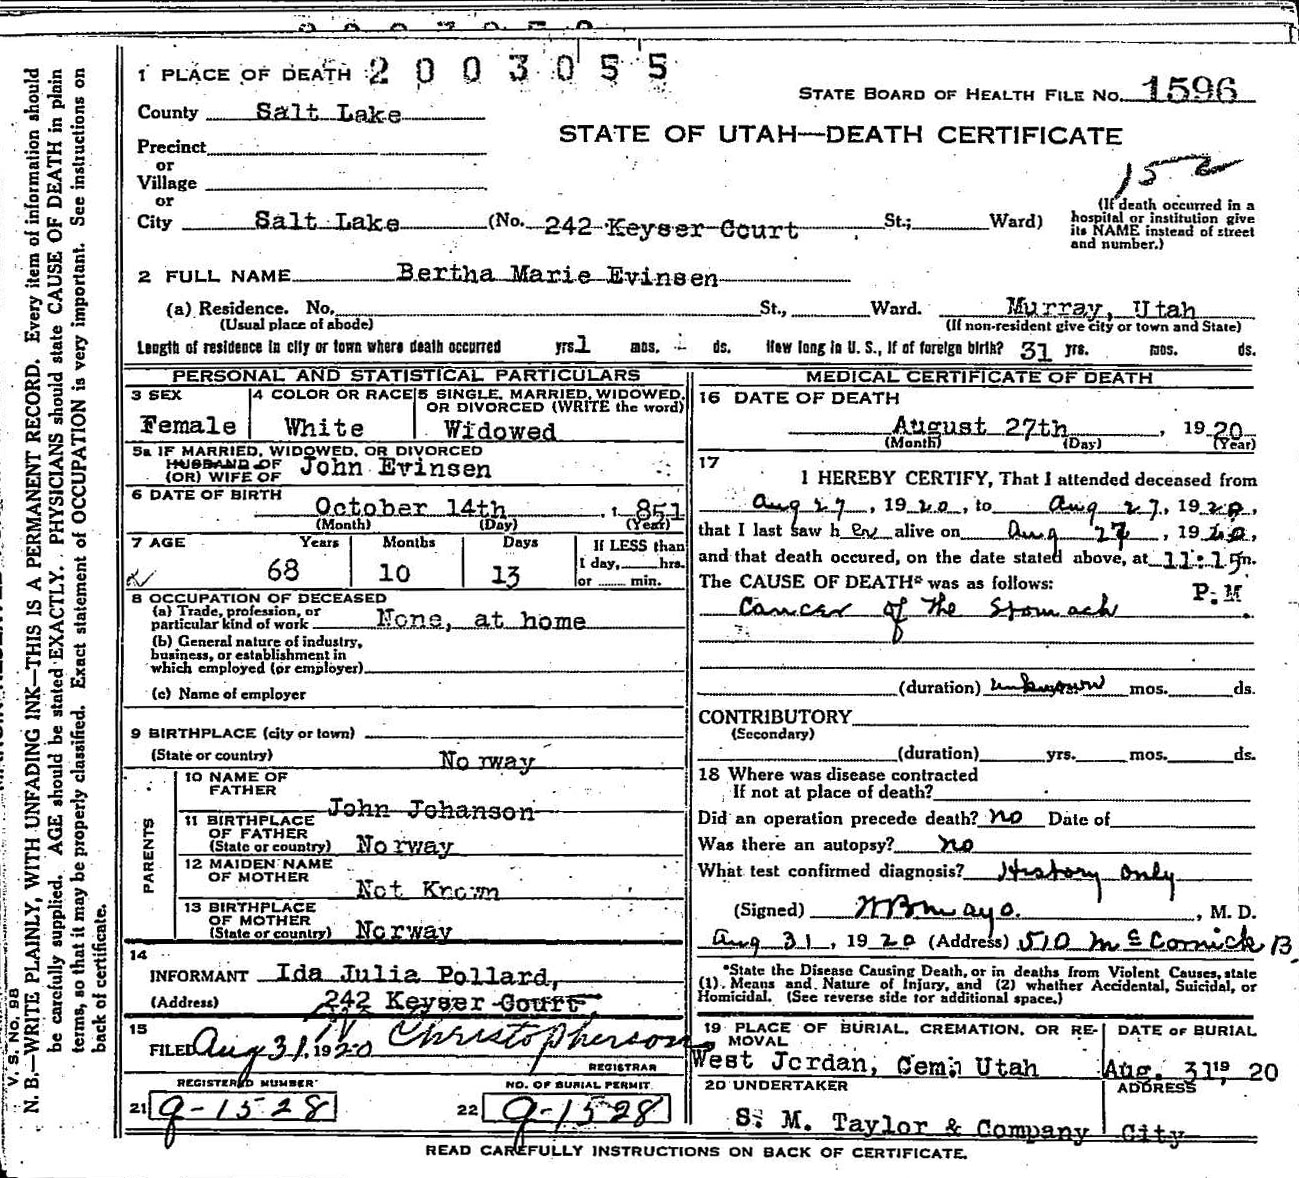 1 PLACE OF DEATH 2003055
STATE BOARD OF HEALTH FILE NO. 1596
County Salt Lake
STATE OF UTAH—DEATH CERTIFICATE
Precinct
or
Village
or
152
City Salt Lake (No. 242 Keyser Court St.; Ward)
(If death occurred in a hospital or institution give its NAME instead of street and number.)
2 FULL NAME Bertha Marie Evinsen
(a) Residence. No. St., Ward. Murray, Utah
(Usual place of abode) (If non-resident give city or town and State)
Length of residence in city or town where death occurred yrs. 1 mos. - ds. How long in U. S., if of foreign birth? 31 yrs. mos. ds.
PERSONAL AND STATISTICAL PARTICULARS
3 SEX 4 COLOR OR RACE 5 SINGLE, MARRIED, WIDOWED, OR DIVORCED (WRITE the word)
Female White Widowed
5a IF MARRIED, WIDOWED, OR DIVORCED
HUSBAND OF
(OR) WIFE OF John Evinsen
6 DATE OF BIRTH
October 14th , 1 851
(Month) (Day) (Year)
7 AGE Years Months Days If LESS than
1 day, hrs.
or min.
68 10 13
8 OCCUPATION OF DECEASED
(a) Trade, profession, or
particular kind of work None, at home
(b) General nature of industry,
business, or establishment in
which employed (or employer)
(c) Name of employer
9 BIRTHPLACE (city or town)
(State or country) Norway
PARENTS
10 NAME OF FATHER John Johanson
11 BIRTHPLACE OF FATHER
(State or country) Norway
12 MAIDEN NAME OF MOTHER Not Known
13 BIRTHPLACE OF MOTHER
(State or country) Norway
14
INFORMANT Ida Julia Pollard,
(Address) 242 Keyser Court
15
FILED Aug 31, 1920 Christopherson
REGISTRAR
REGISTERED NUMBER NO. OF BURIAL PERMIT
21 9-1528 22 9-1528
MEDICAL CERTIFICATE OF DEATH
16 DATE OF DEATH
August 27th , 1920
(Month) (Day) (Year)
17
I HEREBY CERTIFY, That I attended deceased from
Aug 27, 1920, to Aug 27, 1920,
that I last saw her alive on Aug 27, 1920,
and that death occured, on the date stated above, at 11:15 m.
The CAUSE OF DEATH* was as follows: P.M.
Cancer of the Stomach
(duration) unknown mos. ds.
CONTRIBUTORY
(Secondary)
(duration) yrs. mos. ds.
18 Where was disease contracted
If not at place of death?
Did an operation precede death? no Date of
Was there an autopsy? no
What test confirmed diagnosis? History only
(Signed) Mayo. , M. D.
Aug 31, 1920 (Address) 510 McCornick B.
*State the Disease Causing Death, or in deaths from Violent Causes, state
(1). Means and Nature of Injury, and (2) whether Accidental, Suicidal, or
Homicidal. (See reverse side for additional space.)
19 PLACE OF BURIAL, CREMATION, OR REMOVAL DATE OF BURIAL
West Jordan, Cem. Utah Aug. 31 19 20
20 UNDERTAKER ADDRESS
S. M. Taylor & Company City
READ CAREFULLY INSTRUCTIONS ON BACK OF CERTIFICATE.
V. S. NO. 98
N. B.—WRITE PLAINLY, WITH UNFADING INK—THIS IS A PERMANENT RECORD. Every item of information should
be carefully supplied. AGE should be stated EXACTLY. PHYSICIANS should state CAUSE OF DEATH in plain
terms, so that it may be properly classified. Exact statement of OCCUPATION is very important. See instructions on
back of certificate.